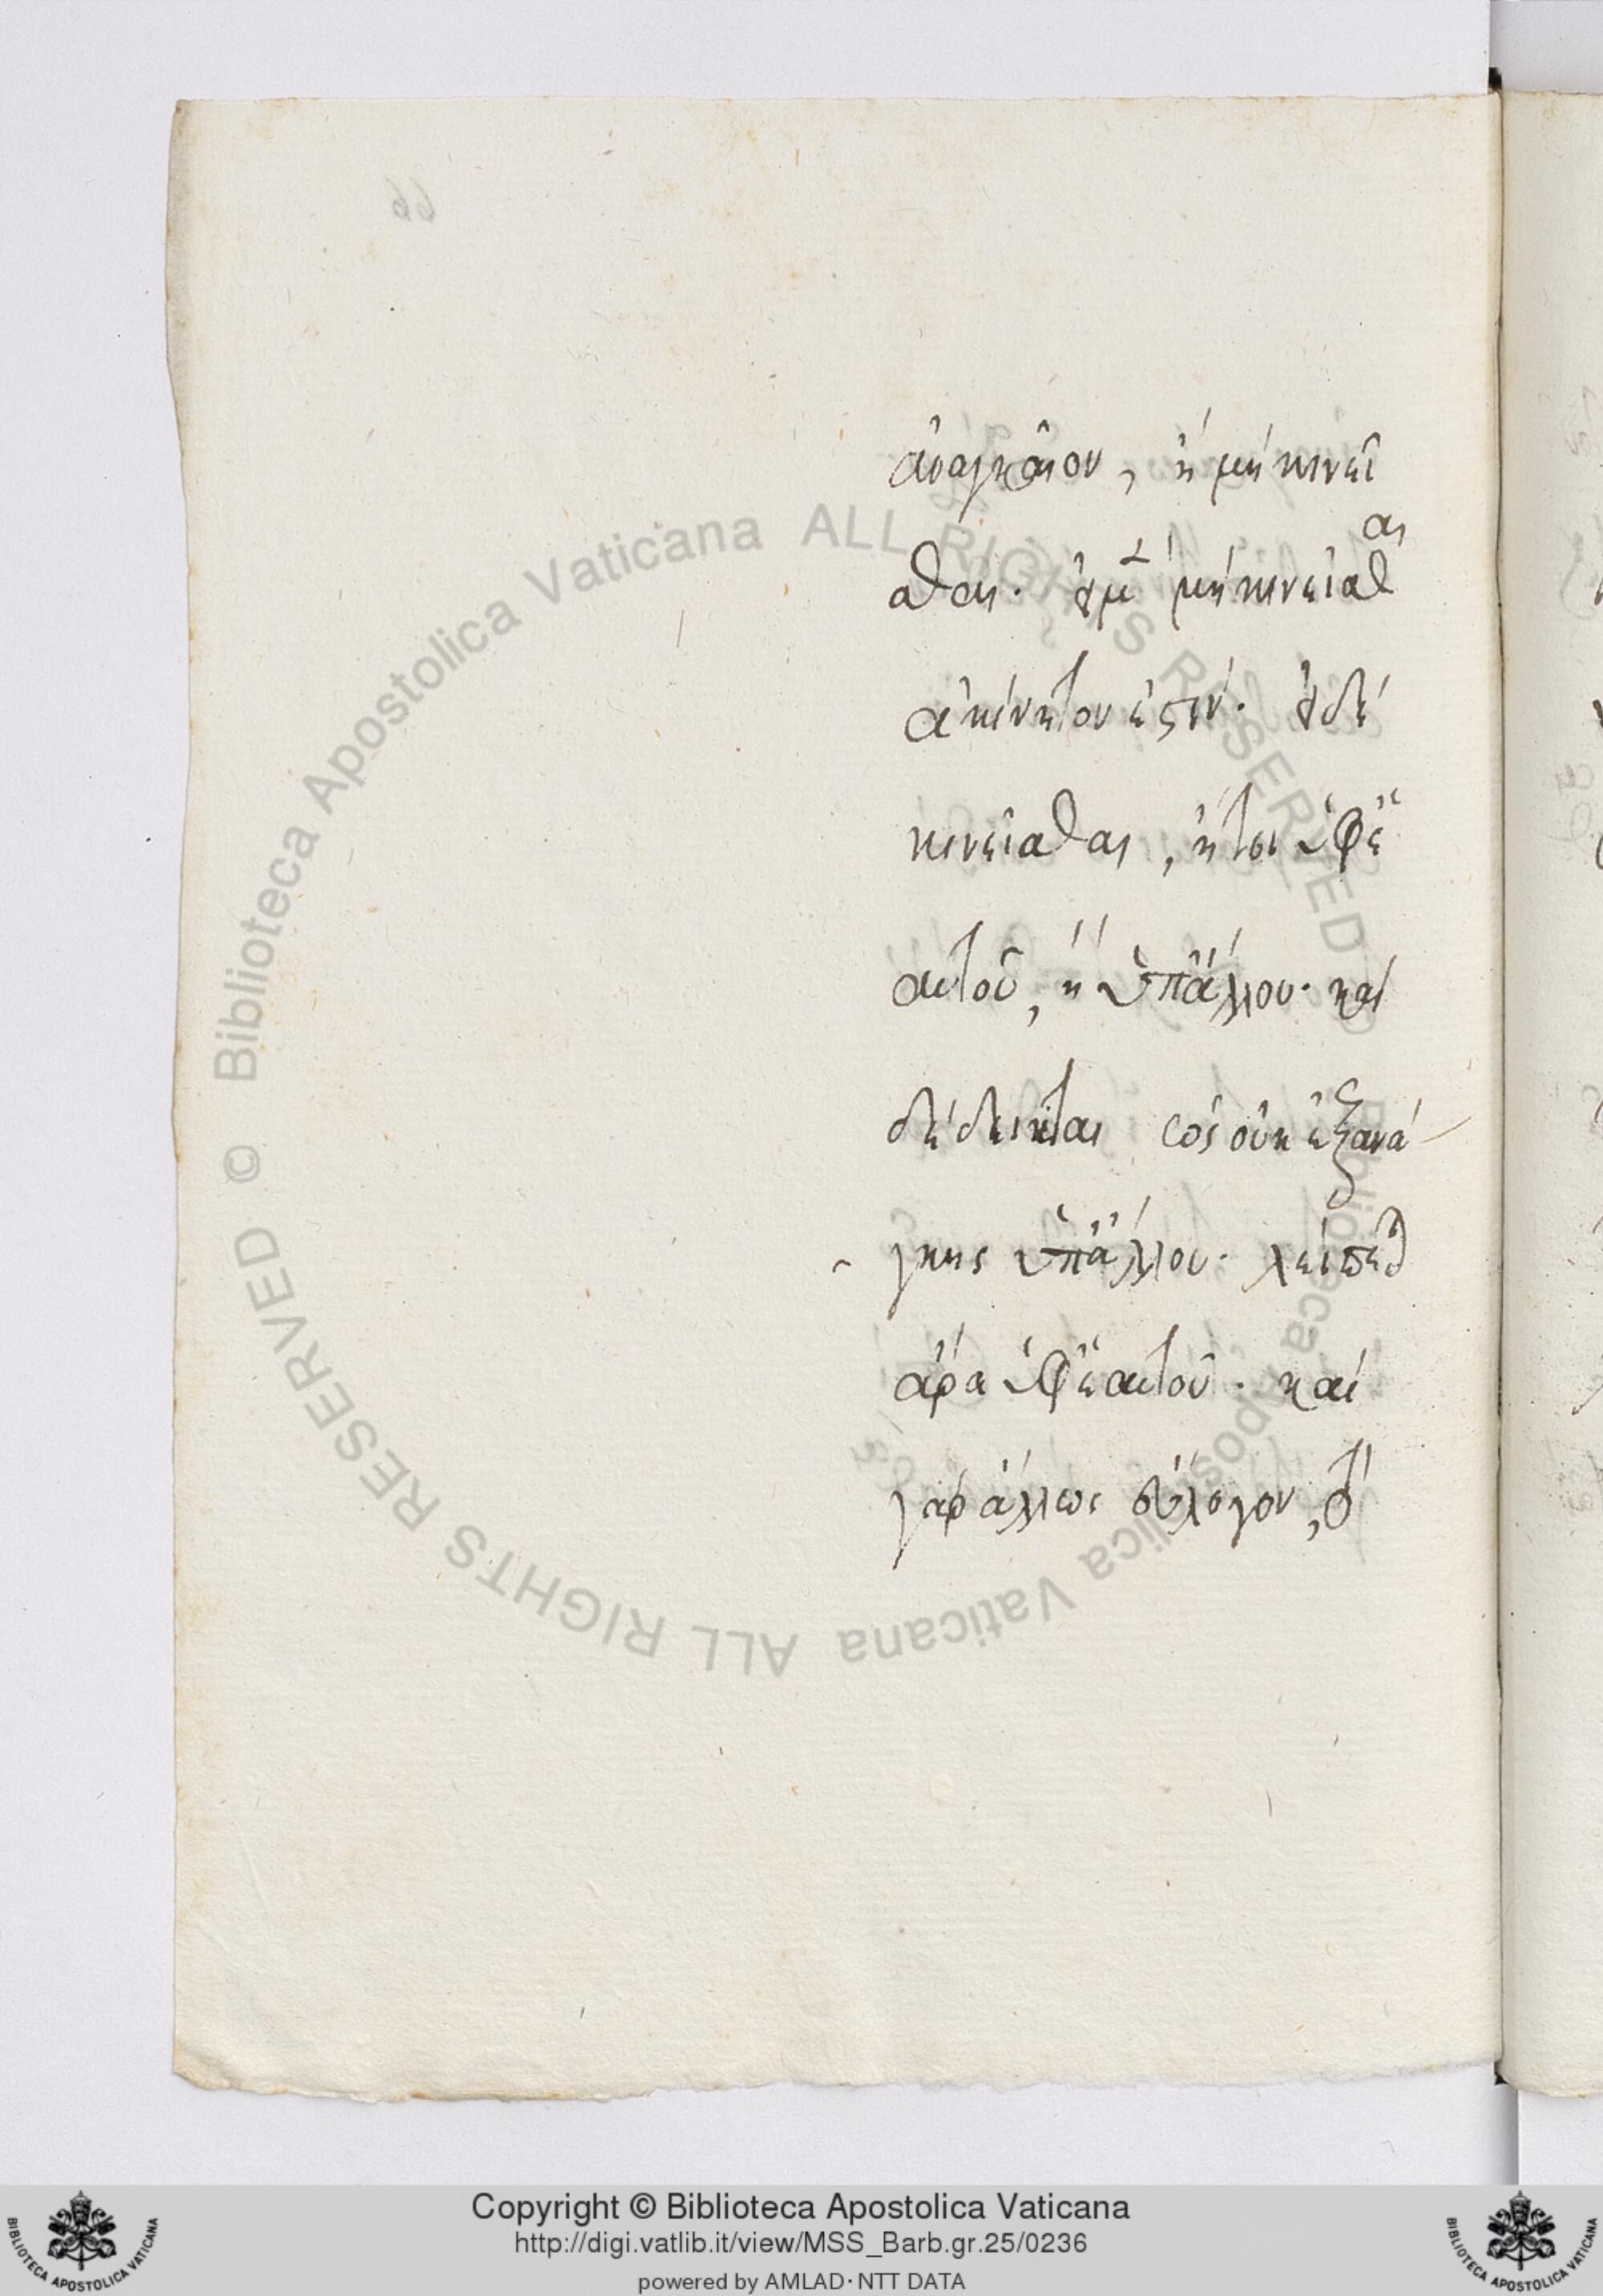 ἀναγκαῖον, ἢ μὴ κινεῖ
σθαι. εἰ μὲν μὴ κινεῖσθαι
ἀκίνητόν ἐστιν. εἰ δὲ
κινεῖσθαι, ἤτοι ὑφ' ἑ
αυτοῦ, ἢ ὑπ' ἄλλου. καὶ
δέδεικται ὡς οὐκ ἐξ ἀνά
γκης ὑπ' ἄλλου. λείπεται
ἄρα ὑφ' ἑαυτοῦ. καὶ
γὰρ ἄλλως εὔλογον, τὸ
© Biblioteca Apostolica Vaticana ALL RIGHTS RESERVED
© Biblioteca Apostolica Vaticana ALL RIGHTS RESERVED
Copyright © Biblioteca Apostolica Vaticana
http://digi.vatlib.it/view/MSS_Barb.gr.25/0236
powered by AMLAD·NTT DATA
BIBLIOTECA APOSTOLICA VATICANA
BIBLIOTECA APOSTOLICA VATICANA